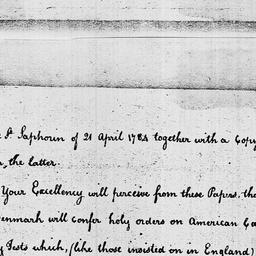 St Saphorin of 21 April 1784 together with a Copy
the latter.
Your Excellency will perceive from these Papers, tha
enmark will confer holy orders on American Ca
Tests which, (like those insisted on in England)